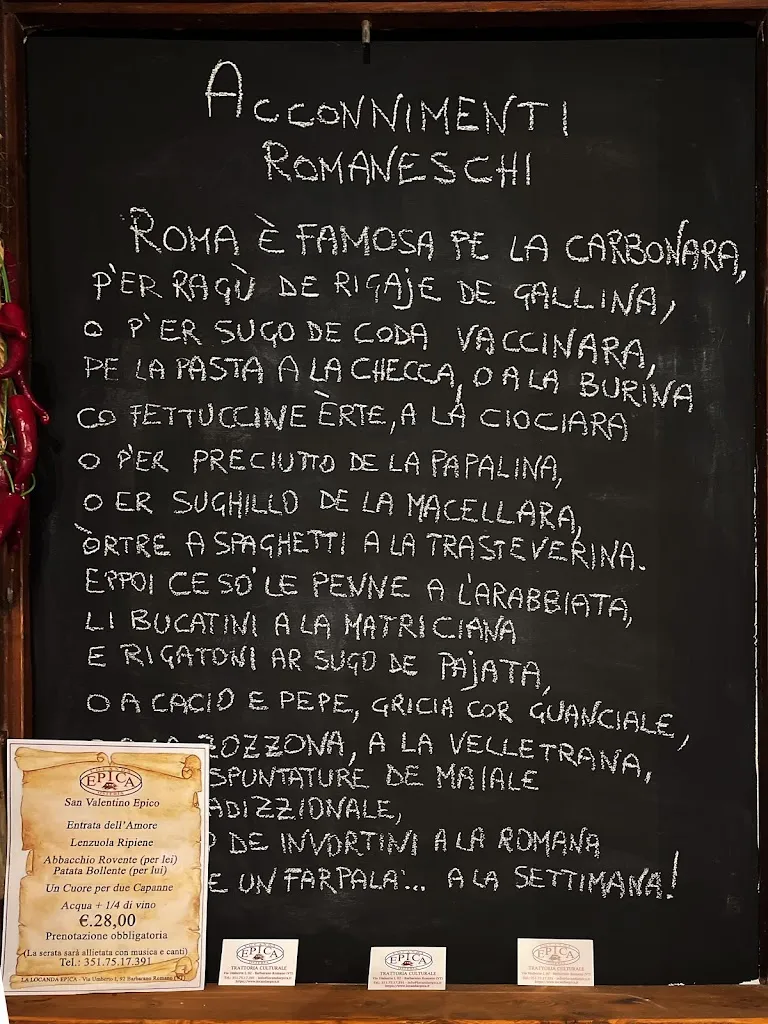 ACCONNIMENTI
ROMANESCHI
ROMA È FAMOSA PE LA CARBONARA,
P'ER RAGÙ DE RIGAJE DE GALLINA,
O P'ER SUGO DE CODA VACCINARA,
PE LA PASTA A LA CHECCA, O A LA BURINA
CO FETTUCCINE ÈRTE, A LA CIOCIARA
O P'ER PRECIUTTO DE LA PAPALINA,
O ER SUGHILLO DE LA MACELLARA,
ÒRTRE A SPAGHETTI A LA TRASTEVERINA.
EPPOI CE SO' LE PENNE A L'ARABBIATA,
LI BUCATINI A LA MATRICIANA
E RIGATONI AR SUGO DE PAJATA,
O A CACIO E PEPE, GRICIA COR GUANCIALE,
ZOZZONA, A LA VELLETRANA,
SPUNTATURE DE MAIALE
ADIZZIONALE,
DE INVORTINI A LA ROMANA
E UN FARPALA'... A LA SETTIMANA!
EPICA
San Valentino Epico
Entrata dell'Amore
Lenzuola Ripiene
Abbacchio Rovente (per lei)
Patata Bollente (per lui)
Un Cuore per due Capanne
Acqua + 1/4 di vino
€.28,00
Prenotazione obbligatoria
(La serata sarà allietata con musica e canti)
Tel.: 351.75.17.391
LA LOCANDA EPICA - Via Umberto I, 92 Barbarano Romano (VT)
EPICA
TRATTORIA CULTURALE
EPICA
TRATTORIA CULTURALE
EPICA
TRATTORIA CULTURALE